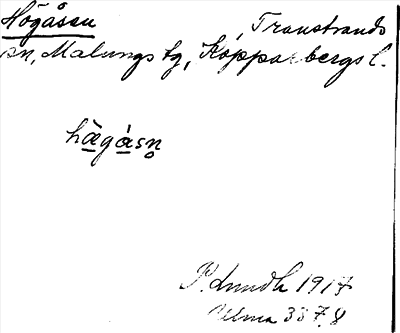 Högåssn , Transtrands
sn, Malungs tg, Kopparbergs l.
hägásn
P. Lundh 1917
Ulma 337.8